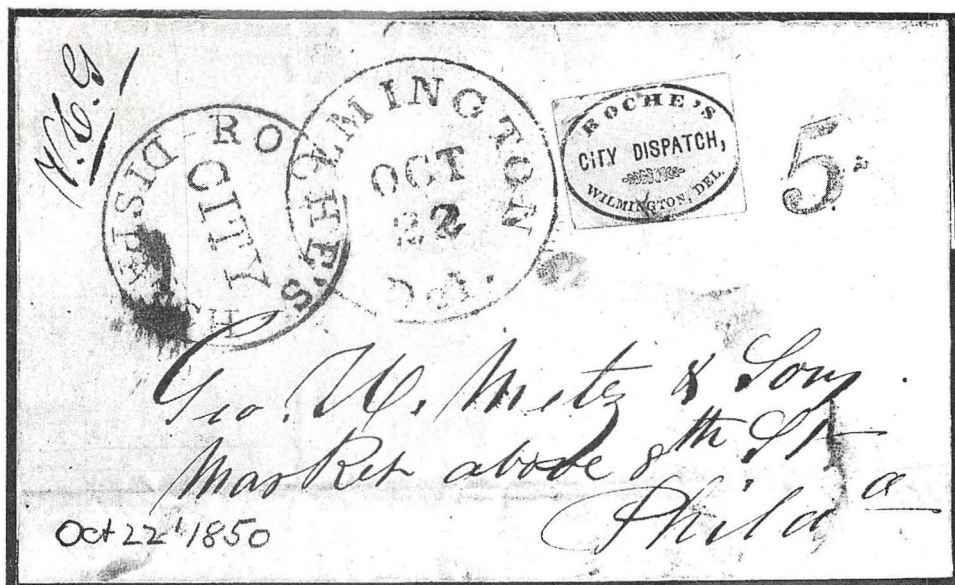 ROCHE'S
CITY
DISPATCH
WILMINGTON
OCT
22
Del.
ROCHE'S
CITY DISPATCH,
WILMINGTON, DEL.
5
Geo. H. & Sons.
Market above 8th St
Philad a
Oct 22 '1850